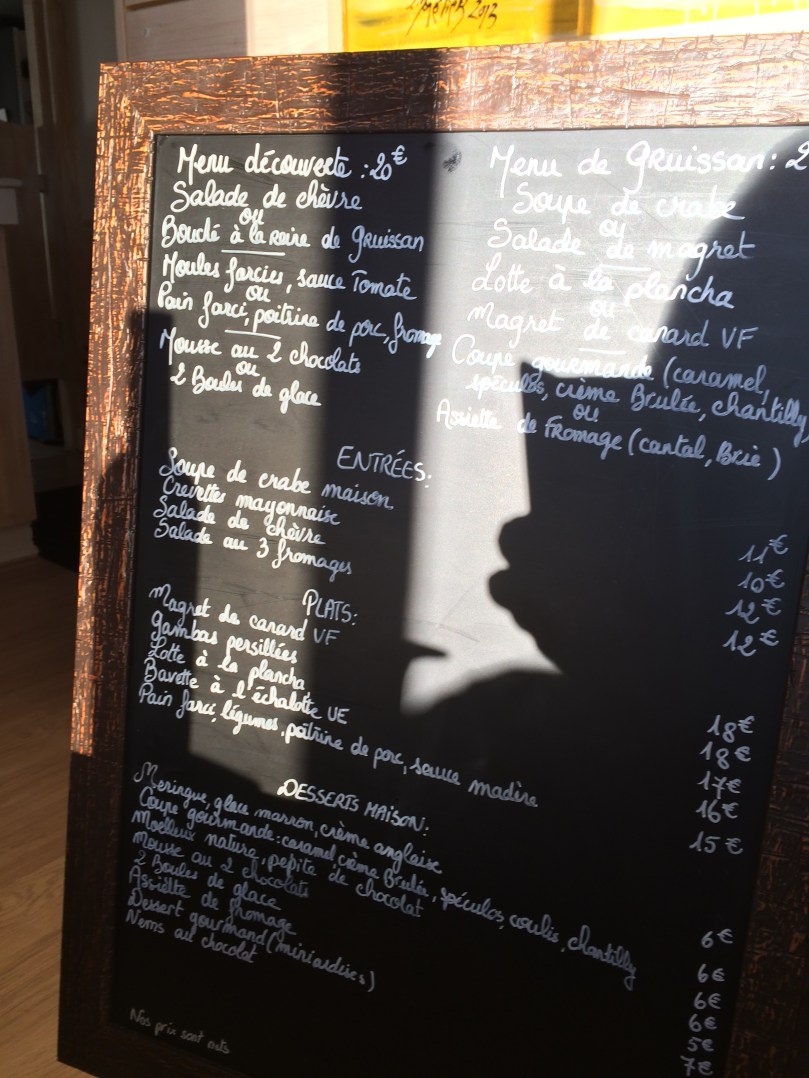 2013
Menu découverte : 20€
Salade de chèvre
ou
Bouché à la reine de gruissan
Moules farcies, sauce Tomate
ou
Pain farci, poitrine de porc, fromage
Mousse au 2 chocolats
ou
2 Boules de glace
Menu de gruissan : 2
Soupe de crabe
ou
Salade de magret
Lotte à la plancha
ou
Magret de canard VF
Coupe gourmande (caramel,
spéculos, crème Brulée, chantilly,
ou
Assiette de Fromage (cantal, Brie)
ENTRÉES:
Soupe de crabe maison 11€
Crevettes mayonnaise 10€
Salade de chèvre 12€
Salade au 3 fromages 12€
PLATS:
Magret de canard VF 18€
Gambas persillées 18€
Lotte à la plancha 17€
Bavette à l'échalotte UE 16€
Pain farci, légumes, poitrine de porc, sauce madère 15€
DESSERTS MAISON:
Meringue, glace marron, crème anglaise 6€
Coupe gourmande: caramel, crème Brulée, spéculos, coulis, chantilly 6€
Moelleux nature, pepite de chocolat 6€
Mousse au 2 chocolats 6€
2 Boules de glace 5€
Assiette de fromage 7€
Dessert gourmand (miniardises)
Nems au chocolat
Nos prix sont nets